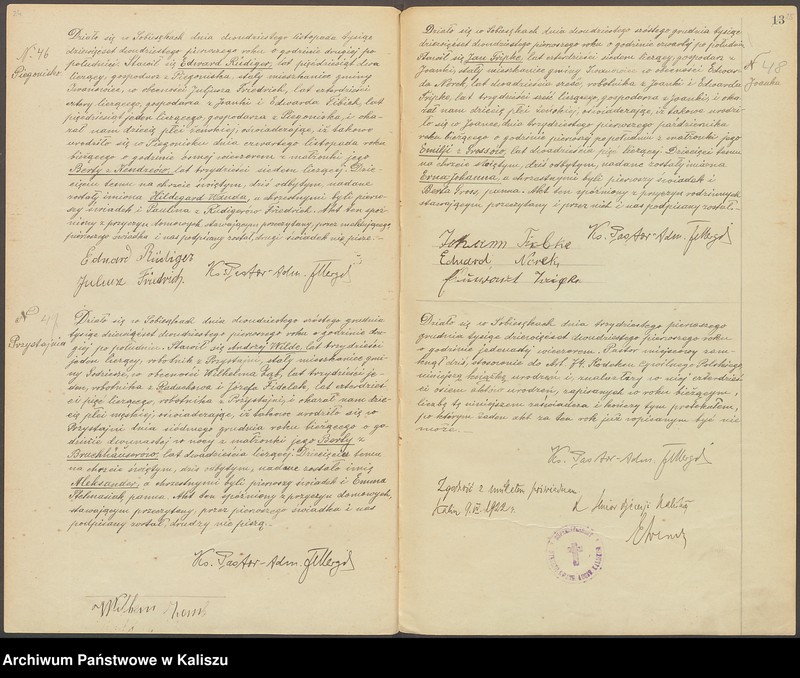 N. 46
Piegonisko.
Działo się w Sobiesękach dnia dwudziestego listopada tysiąc
dziewięćset dwudziestego pierwszego roku o godzinie drugiej po
południu. Stawił się Edward Rüdiger, lat pięćdziesiąt dwa
liczący, gospodarz z Piegoniska, stały mieszkaniec gminy
Iwanowice, w obecności Juljusza Friedrich, lat czterdzieści
cztery liczącego, gospodarza z Joanki i Edwarda Libich, lat
pięćdziesiąt jeden liczącego gospodarza z Piegoniska, i oka-
zał nam dziecię płci żeńskiej, oświadczając, iż takowe
urodziło się w Piegonisku dnia czwartego listopada roku
bieżącego o godzinie ósmej wieczorem z małżonki jego
Berty z Kendziów, lat trzydzieści siedem liczącej. Dzie-
cięciu temu na chrzcie świętym, dziś odbytym, nadane
zostały imiona Hildegard Wanda, a chrzestnymi byli pierw-
szy świadek i Paulina z Rüdigerów Friedrich. Akt ten opóź-
niony z przyczyn domowych, stawającym przeczytany, przez
pierwszego świadka i nas podpisany został, drugi świadek nie pisze.
Eduard Rüdiger
Juliusz Fridrich. Ks. Pastor-Adm.
N 47
Przystajnia
Działo się w Sobiesękach dnia dwudziestego szóstego grudnia
tysiąc dziewięćset dwudziestego pierwszego roku o godzinie dru-
giej po południu. Stawił się Andrzej Wilde, lat trzydzieści
jeden liczący, robotnik z Przystajni, stały mieszkaniec gmi-
ny Godziesze, w obecności Wilhelma Lejb, lat trzydzieści je-
den, robotnika z Raduchowa i Józefa Fidelak, lat czterdzieś-
ci pięć liczącego, robotnika z Przystajni, i okazał nam dzie-
cię płci męskiej, oświadczając, iż takowe urodziło się w
Przystajni dnia siódmego grudnia roku bieżącego o go-
dzinie dwunastej w nocy z małżonki jego Berty z
Bruckhäuserów, lat dwadzieścia liczącej. Dziecięciu temu
na chrzcie świętym, dziś odbytym, nadane zostało imię
Aleksander, a chrzestnymi byli pierwszy świadek i Emma
Stelmasiak panna. Akt ten opóźniony z przyczyn domowych,
stawającym przeczytany, przez pierwszego świadka i nas
podpisany został, drudzy nie piszą.
Ks. Pastor-Adm.
Wilhem
13
N 48
Joanka
Działo się w Sobiesękach dnia dwudziestego szóstego grudnia tysiąc
dziewięćset dwudziestego pierwszego roku o godzinie czwartej po południu.
Stawił się Jan Fripke, lat czterdzieści siedem liczący, gospodarz z
Joanki, stały mieszkaniec gminy Iwanowice, w obecności Edwar-
da Nerek, lat dwadzieścia sześć, robotnika z Joanki i Edwarda
Fripke, lat trzydzieści sześć liczącego, gospodarza z Joanki, i oka-
zał nam dziecię płci żeńskiej, oświadczając, iż takowe urodzi-
ło się w Joance, dnia trzydziestego pierwszego października
roku bieżącego o godzinie pierwszej po południu z małżonki jego
Emilji z Grossów, lat dwadzieścia pięć liczącej. Dziecięciu temu
na chrzcie świętym, dziś odbytym, nadane zostały imiona
Erna Johanna, a chrzestnymi byli pierwszy świadek i
Berta Gross, panna. Akt ten opóźniony z przyczyn rodzinnych,
stawającym przeczytany i przez nich i nas podpisany został.
Johann Ks. Pastor-Adm.
Eduard Nerek,
Działo się w Sobiesękach dnia trzydziestego pierwszego
grudnia tysiąc dziewięćset dwudziestego pierwszego roku
o godzinie jedenastej wieczorem. Pastor miejscowy zam-
knął dziś, stosownie do Art. 74. Kodeksu Cywilnego Polskiego
niniejszą książkę urodzeń i, znalazłszy w niej czterdzieś-
ci ośiem aktów urodzeń, zapisanych w roku bieżącym,
liczbę tę niniejszem zaświadcza i kończy tym protokółem,
po którym żaden akt za ten rok już wpisanym być nie
może.
Ks. Pastor-Adm.
Zgodność z unikatem poświadczam
Kalisz 1922 r.
Archiwum Państwowe w Kaliszu